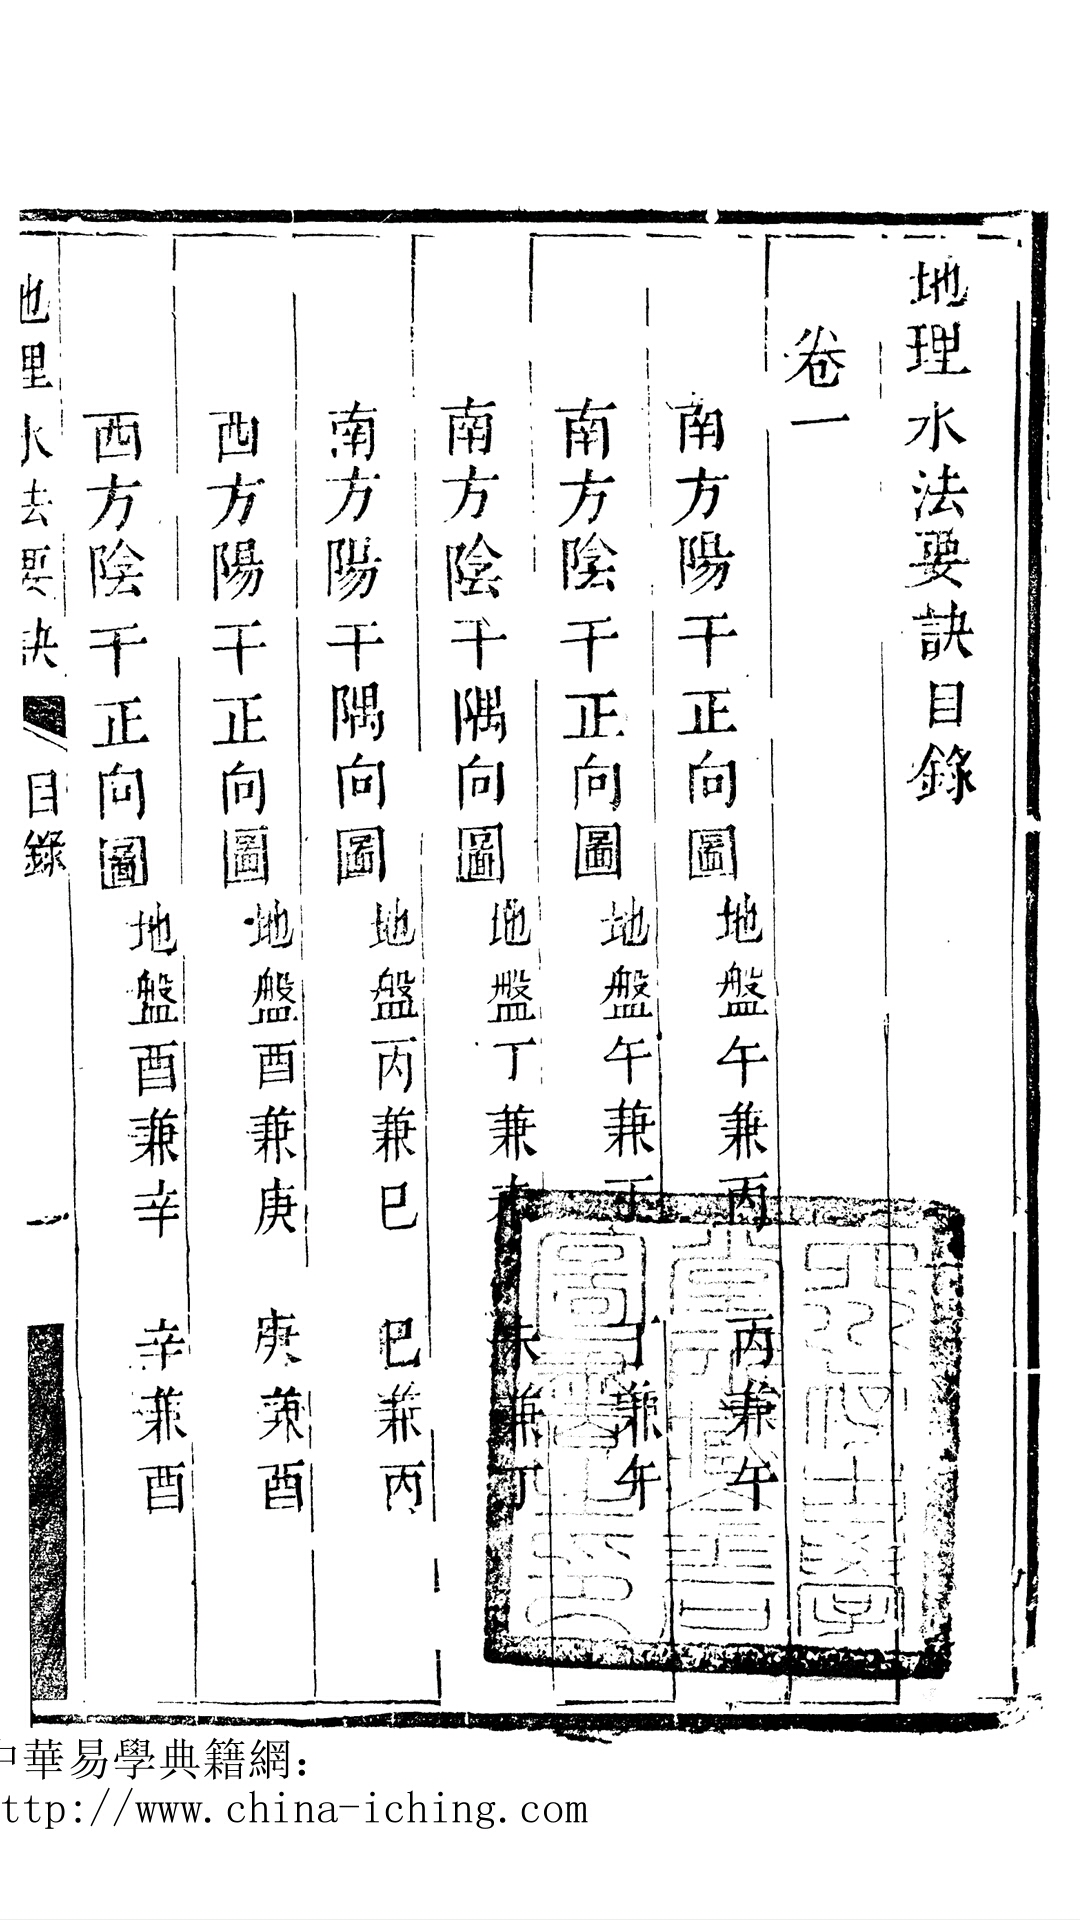 地理水法要訣目錄
卷一
南方陽干正向圖 地盤午兼丙 丙兼午
南方陰干正向圖 地盤午兼丁 丁兼午
南方陰干隅向圖 地盤丁兼未 未兼丁
南方陽干隅向圖 地盤丙兼巳 巳兼丙
西方陽干正向圖 地盤酉兼庚 庚兼酉
西方陰干正向圖 地盤酉兼辛 辛兼酉
地理水法要訣 目錄 一
中華易學典籍網：
ttp://www.china-iching.com